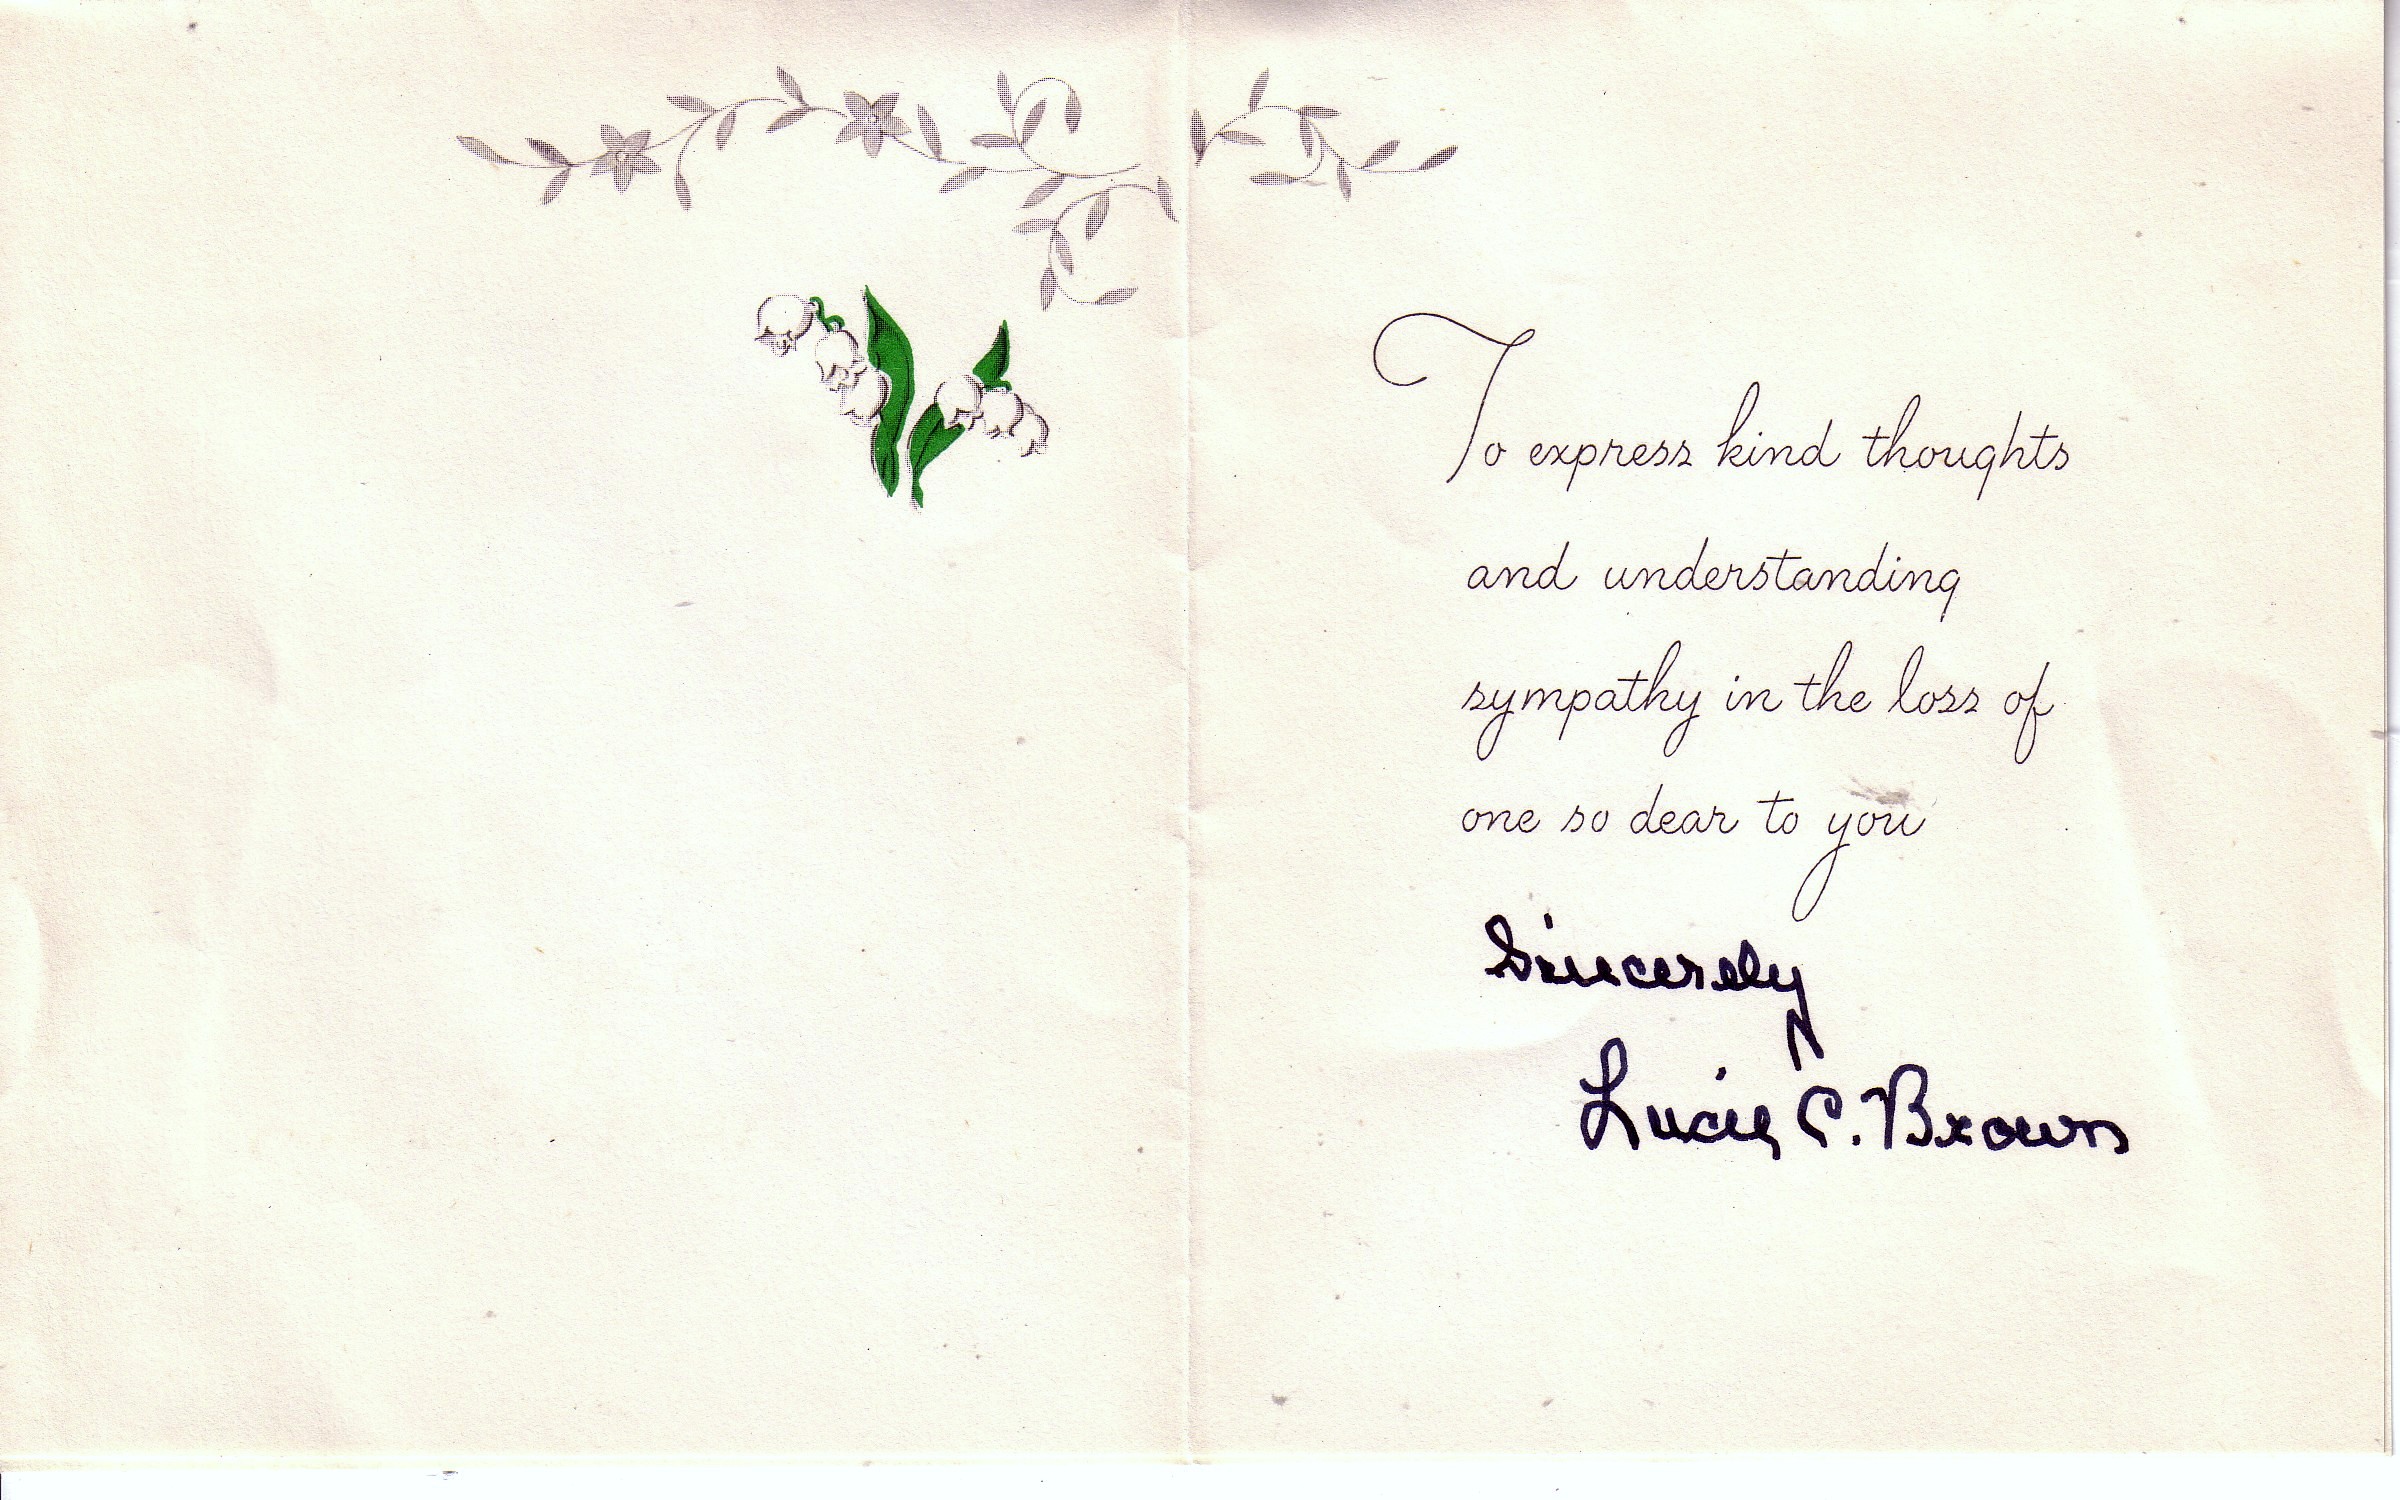 To express kind thoughts
and understanding
sympathy in the loss of
one so dear to you
Sincerely
Lucie C. Brown